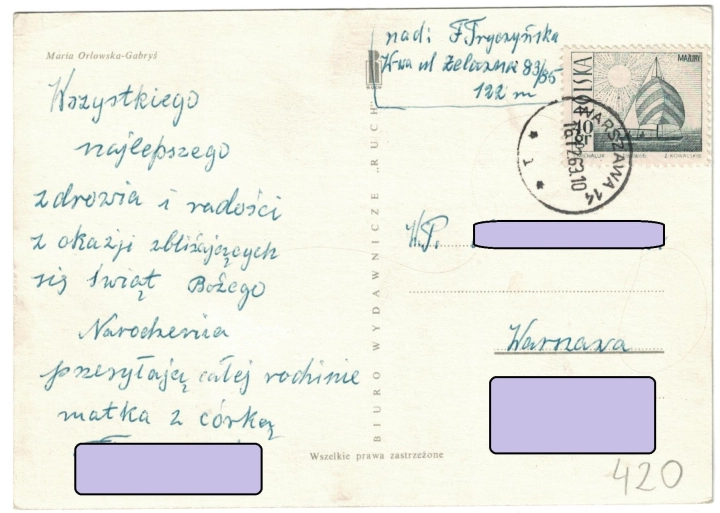 Maria Orłowska-Gabryś
Wszystkiego
najlepszego
zdrowia i radości
z okazji zbliżających
się Świąt Bożego
Narodzenia
przesyłają całej rodzinie
matka z córką
BIURO WYDAWNICZE „RUCH"
Wszelkie prawa zastrzeżone
nad: F Tryczyńska
W-wa ul Żelazna 83/85
122 m
POLSKA
MAZURY
40 gr
Z. KOWALSKI
WARSZAWA 14
1
W.P.
Warszawa
420